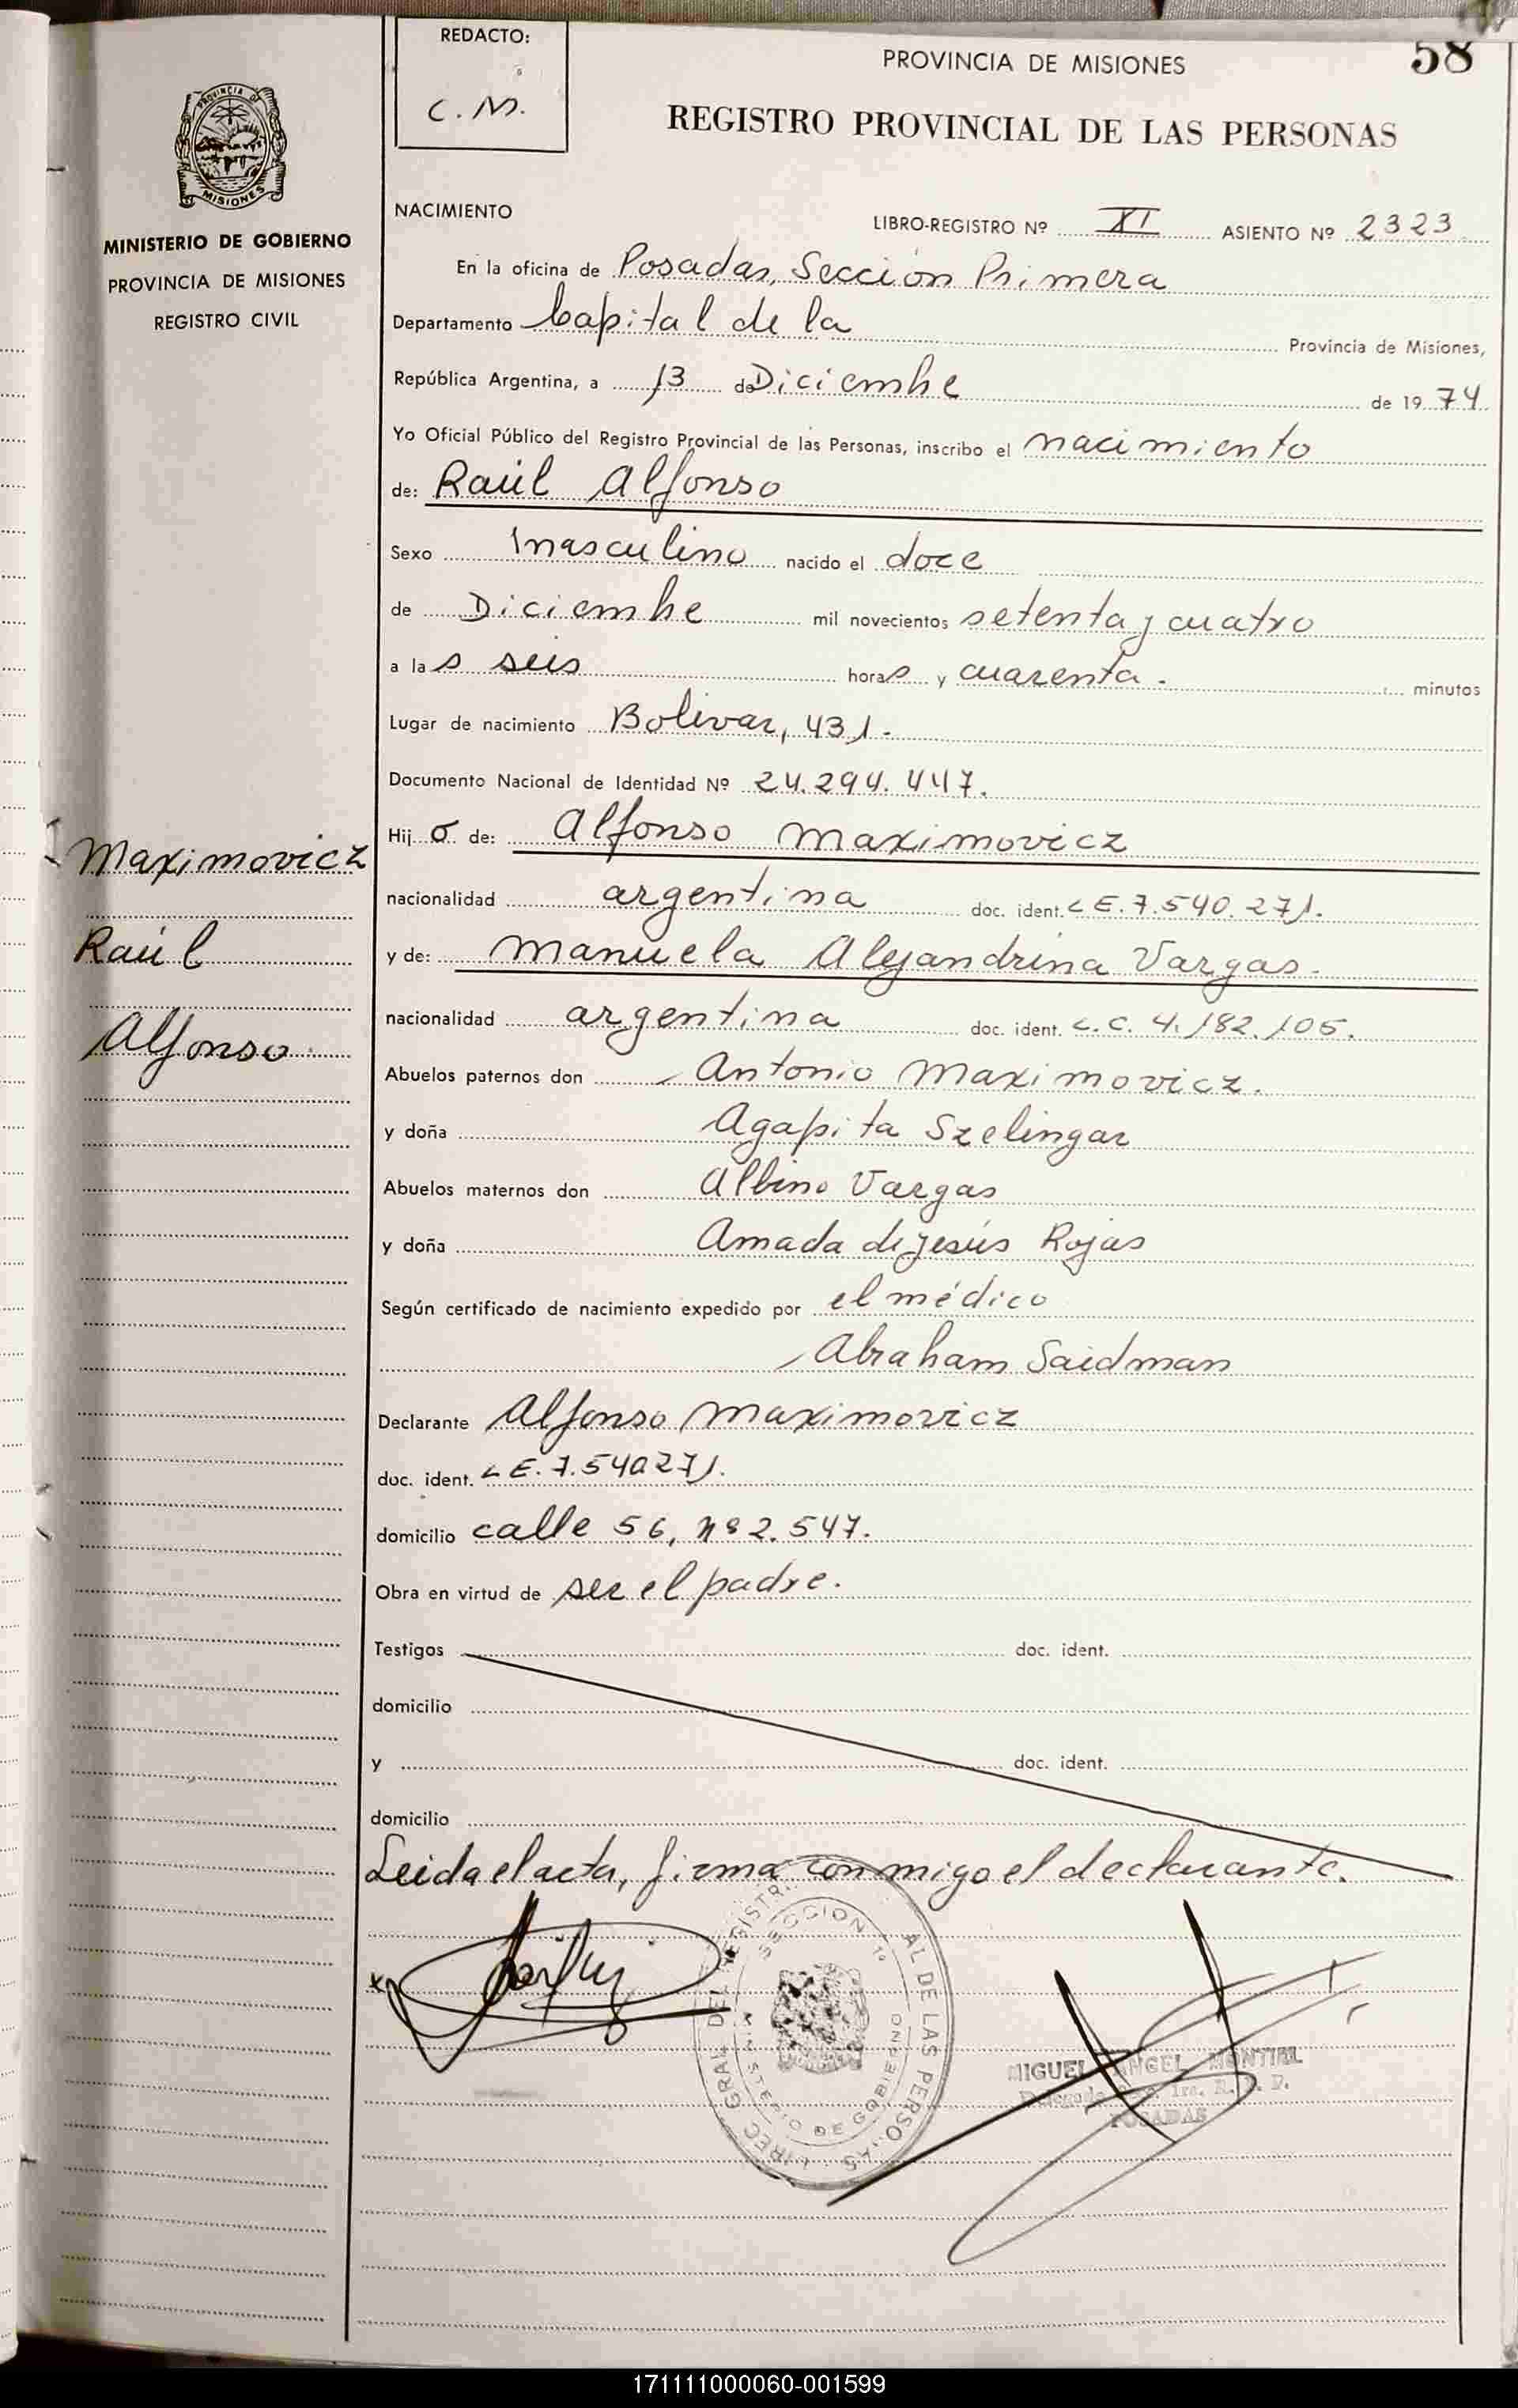 REDACTO:
C. M.
PROVINCIA DE MISIONES
58
REGISTRO PROVINCIAL DE LAS PERSONAS
PROVINCIA DE
MISIONES
MINISTERIO DE GOBIERNO
PROVINCIA DE MISIONES
REGISTRO CIVIL
NACIMIENTO
LIBRO-REGISTRO Nº XI ASIENTO Nº 2323
En la oficina de Posadas, Sección Primera
Departamento Capital de la Provincia de Misiones,
República Argentina, a 13 de Diciembre de 1974
Yo Oficial Público del Registro Provincial de las Personas, inscribo el nacimiento
de: Raúl Alfonso
Sexo masculino nacido el doce
de Diciembre mil novecientos setenta y cuatro
a las seis horas y cuarenta. minutos
Lugar de nacimiento Bolivar, 431.
Documento Nacional de Identidad Nº 24.294.447.
Hijo de: Alfonso Maximovicz
nacionalidad argentina doc. ident. L E. 7.540.271.
y de: Manuela Alejandrina Vargas.
nacionalidad argentina doc. ident. L. C. 4.182.105.
Abuelos paternos don Antonio Maximovicz.
y doña Agapita Szelingar
Abuelos maternos don Albino Vargas
y doña Amada de Jesús Rojas
Según certificado de nacimiento expedido por el médico
Abraham Saidman
Declarante Alfonso Maximovicz
doc. ident. L E. 7.540271.
domicilio calle 56, nº 2.547.
Obra en virtud de ser el padre.
Testigos doc. ident.
domicilio
y doc. ident.
domicilio
Leida el acta, firma conmigo el declarante.
Maximovicz
Raúl
Alfonso
SECCION 1ª
MINISTERIO DE GOBIERNO
MIGUEL ANGEL MONTIEL
POSADAS
171111000060-001599